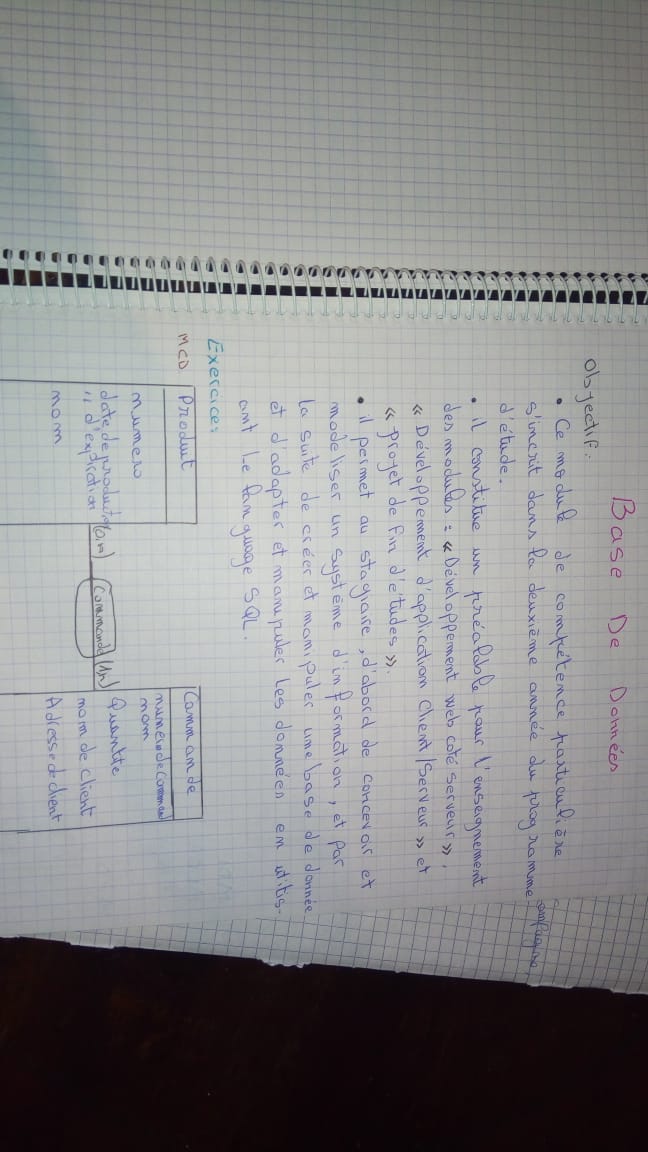 Base De Données
Objectif:
• Ce module de compétence particulière
s'incrit dans la deuxième année du programme
d'étude.
• il constitue un préalable pour l'enseignement
des modules : « Développement web coté serveur »,
« Développement d'application Client/Serveur » et
« projet de fin d'études ».
• il permet au stagiaire, d'abord de concevoir et
modeliser un système d'information, et par
la suite de créer et manipuler une base de donnée
et d'adapter et manipuler les données en utilis-
ant le language SQL.
Exercice:
MCD
Produit
numero
date de production
" d'expiration
nom
(0,n)
Commande
(1,n)
Commande
numero de Command
nom
Quantte
nom de client
Adresse de client